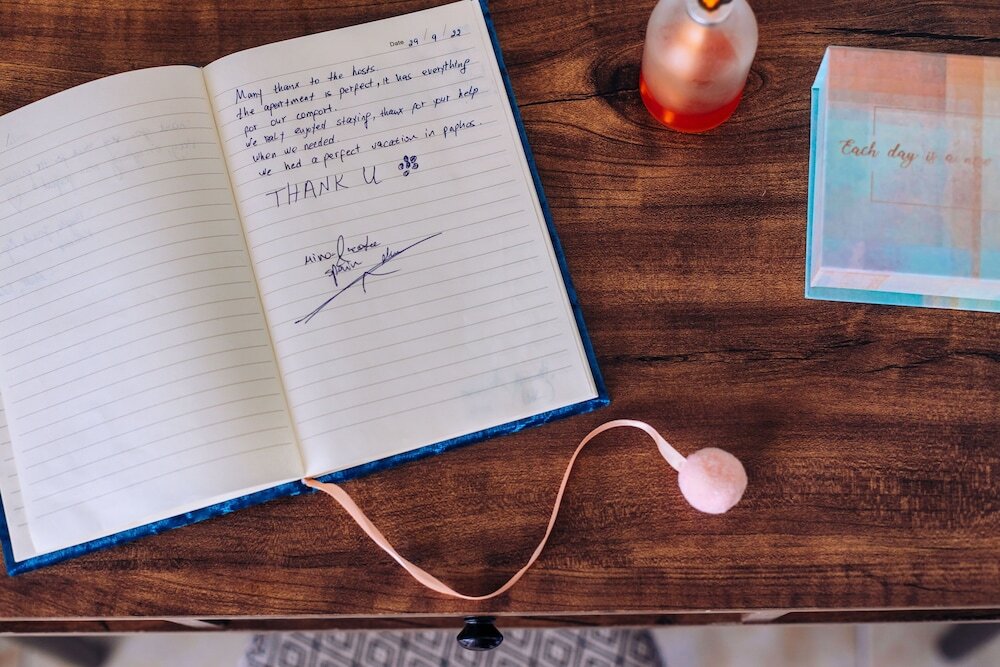 Date 29 / 9 / 22
Many thanx to the hosts.
the apartment is perfect, it has everything
for our comport.
we realy enjoyed staying, thanx for your help
when we needed.
we had a perfect vacation in paphos.
THANK U
spain
Each day is a new